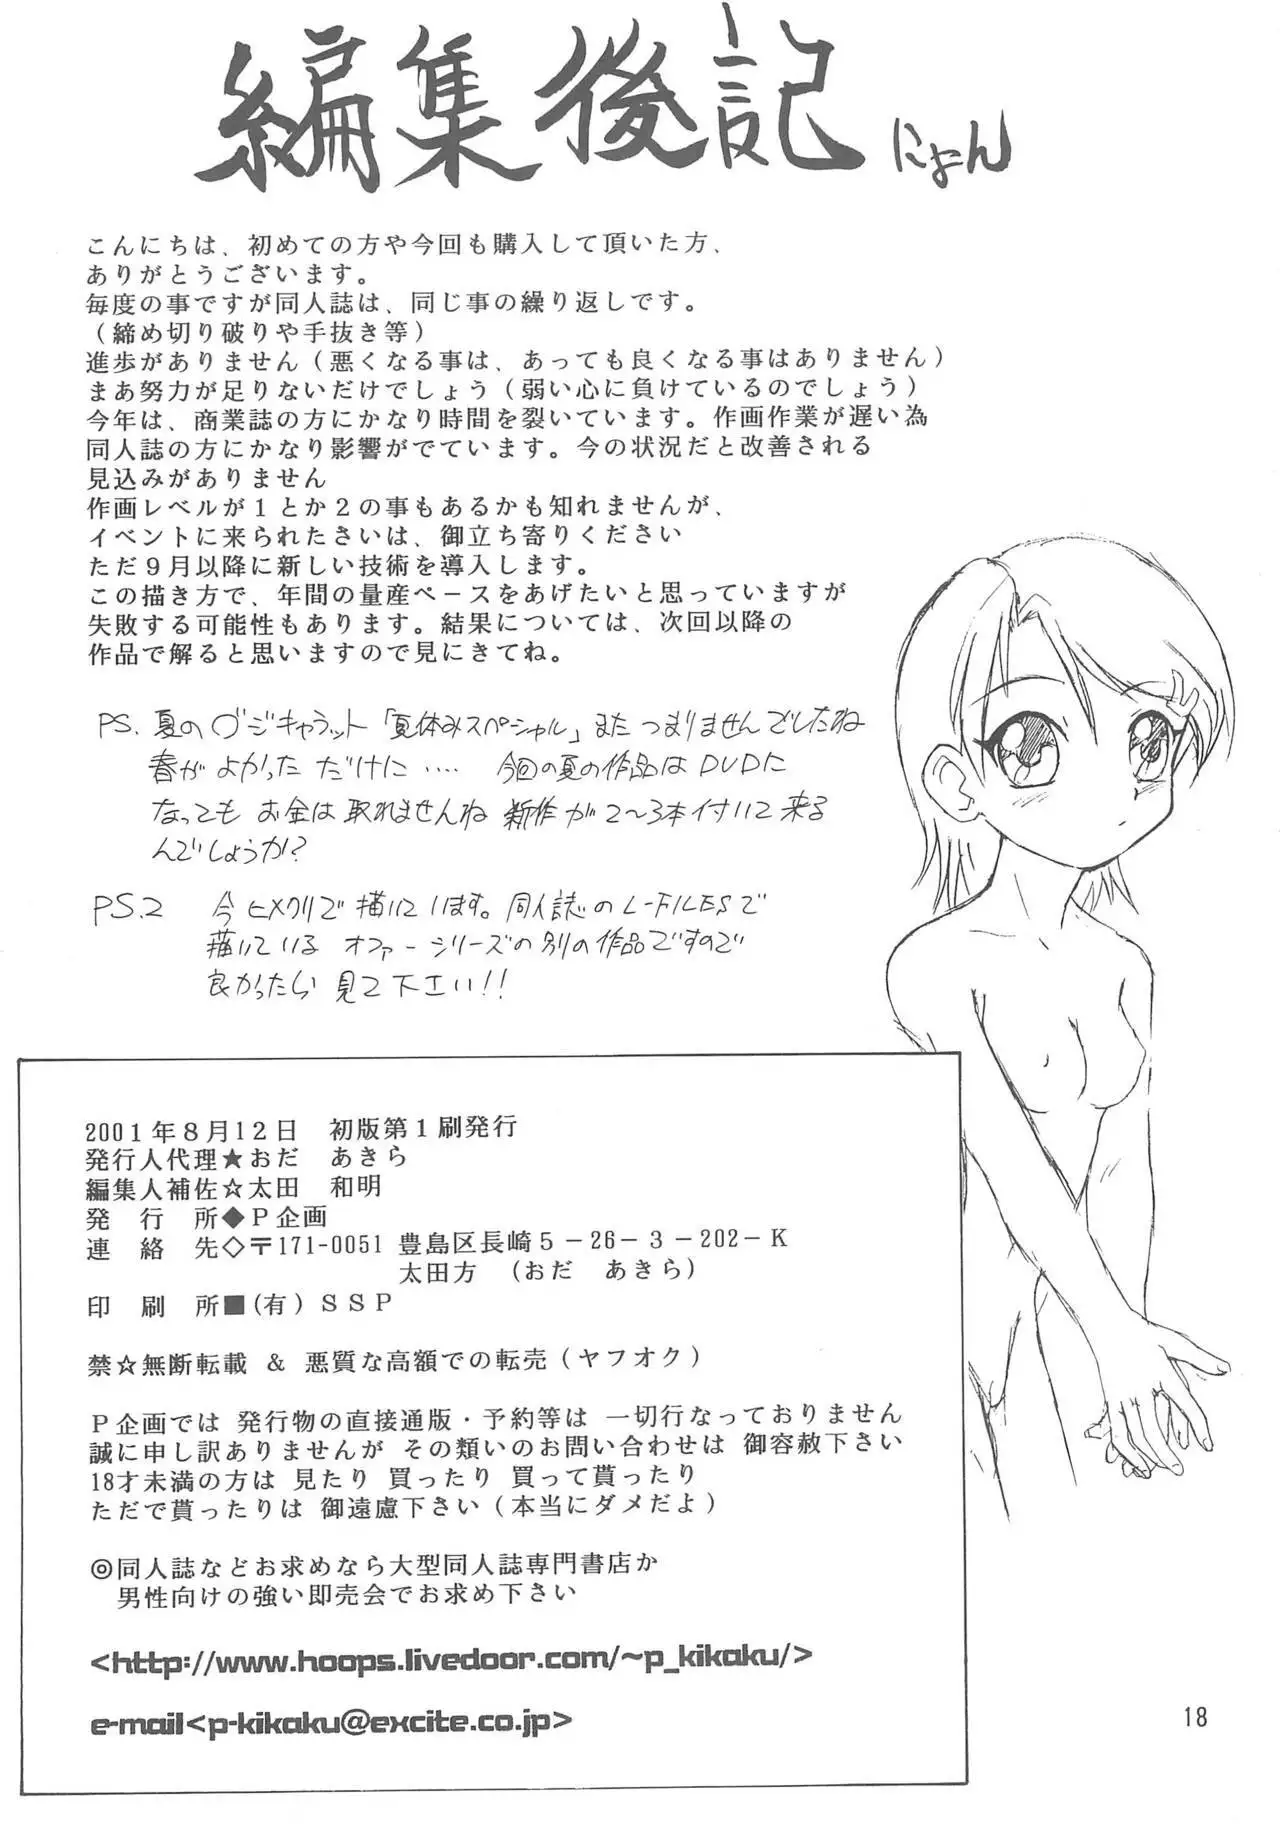 編集後記 にょん
こんにちは、初めての方や今回も購入して頂いた方、
ありがとうございます。
毎度の事ですが同人誌は、同じ事の繰り返しです。
（締め切り破りや手抜き等）
進歩がありません（悪くなる事は、あっても良くなる事はありません）
まあ努力が足りないだけでしょう（弱い心に負けているのでしょう）
今年は、商業誌の方にかなり時間を裂いています。作画作業が遅い為
同人誌の方にかなり影響がでています。今の状況だと改善される
見込みがありません
作画レベルが１とか２の事もあるかも知れませんが、
イベントに来られたさいは、御立ち寄りください
ただ９月以降に新しい技術を導入します。
この描き方で、年間の量産ペースをあげたいと思っていますが
失敗する可能性もあります。結果については、次回以降の
作品で解ると思いますので見にきてね。
PS. 夏のデジキャラット「夏休みスペシャル」また つまりませんでしたね
春が よかった だけに‥‥ 今回の夏の作品はDVDに
なっても お金は取れませんね 新作が2〜3本付いて来る
んでしょうか?
PS.2 今 ヒメクリで描いています。同人誌のL-FILESで
描いている オファーシリーズの別の作品ですので
良かったら 見て下さい!!
2001年８月12日 初版第１刷発行
発行人代理★おだ あきら
編集人補佐☆太田 和明
発行所◆Ｐ企画
連絡先◇〒171-0051 豊島区長崎５－26－３－202－K
太田方 （おだ あきら）
印刷所■(有)ＳＳＰ
禁☆無断転載 ＆ 悪質な高額での転売（ヤフオク）
Ｐ企画では 発行物の直接通販・予約等は 一切行なっておりません
誠に申し訳ありませんが その類いのお問い合わせは 御容赦下さい
18才未満の方は 見たり 買ったり 買って貰ったり
ただで貰ったりは 御遠慮下さい（本当にダメだよ）
◎同人誌などお求めなら大型同人誌専門書店か
男性向けの強い即売会でお求め下さい
<http://www.hoops.livedoor.com/~p_kikaku/>
e-mail<p-kikaku@excite.co.jp>
18